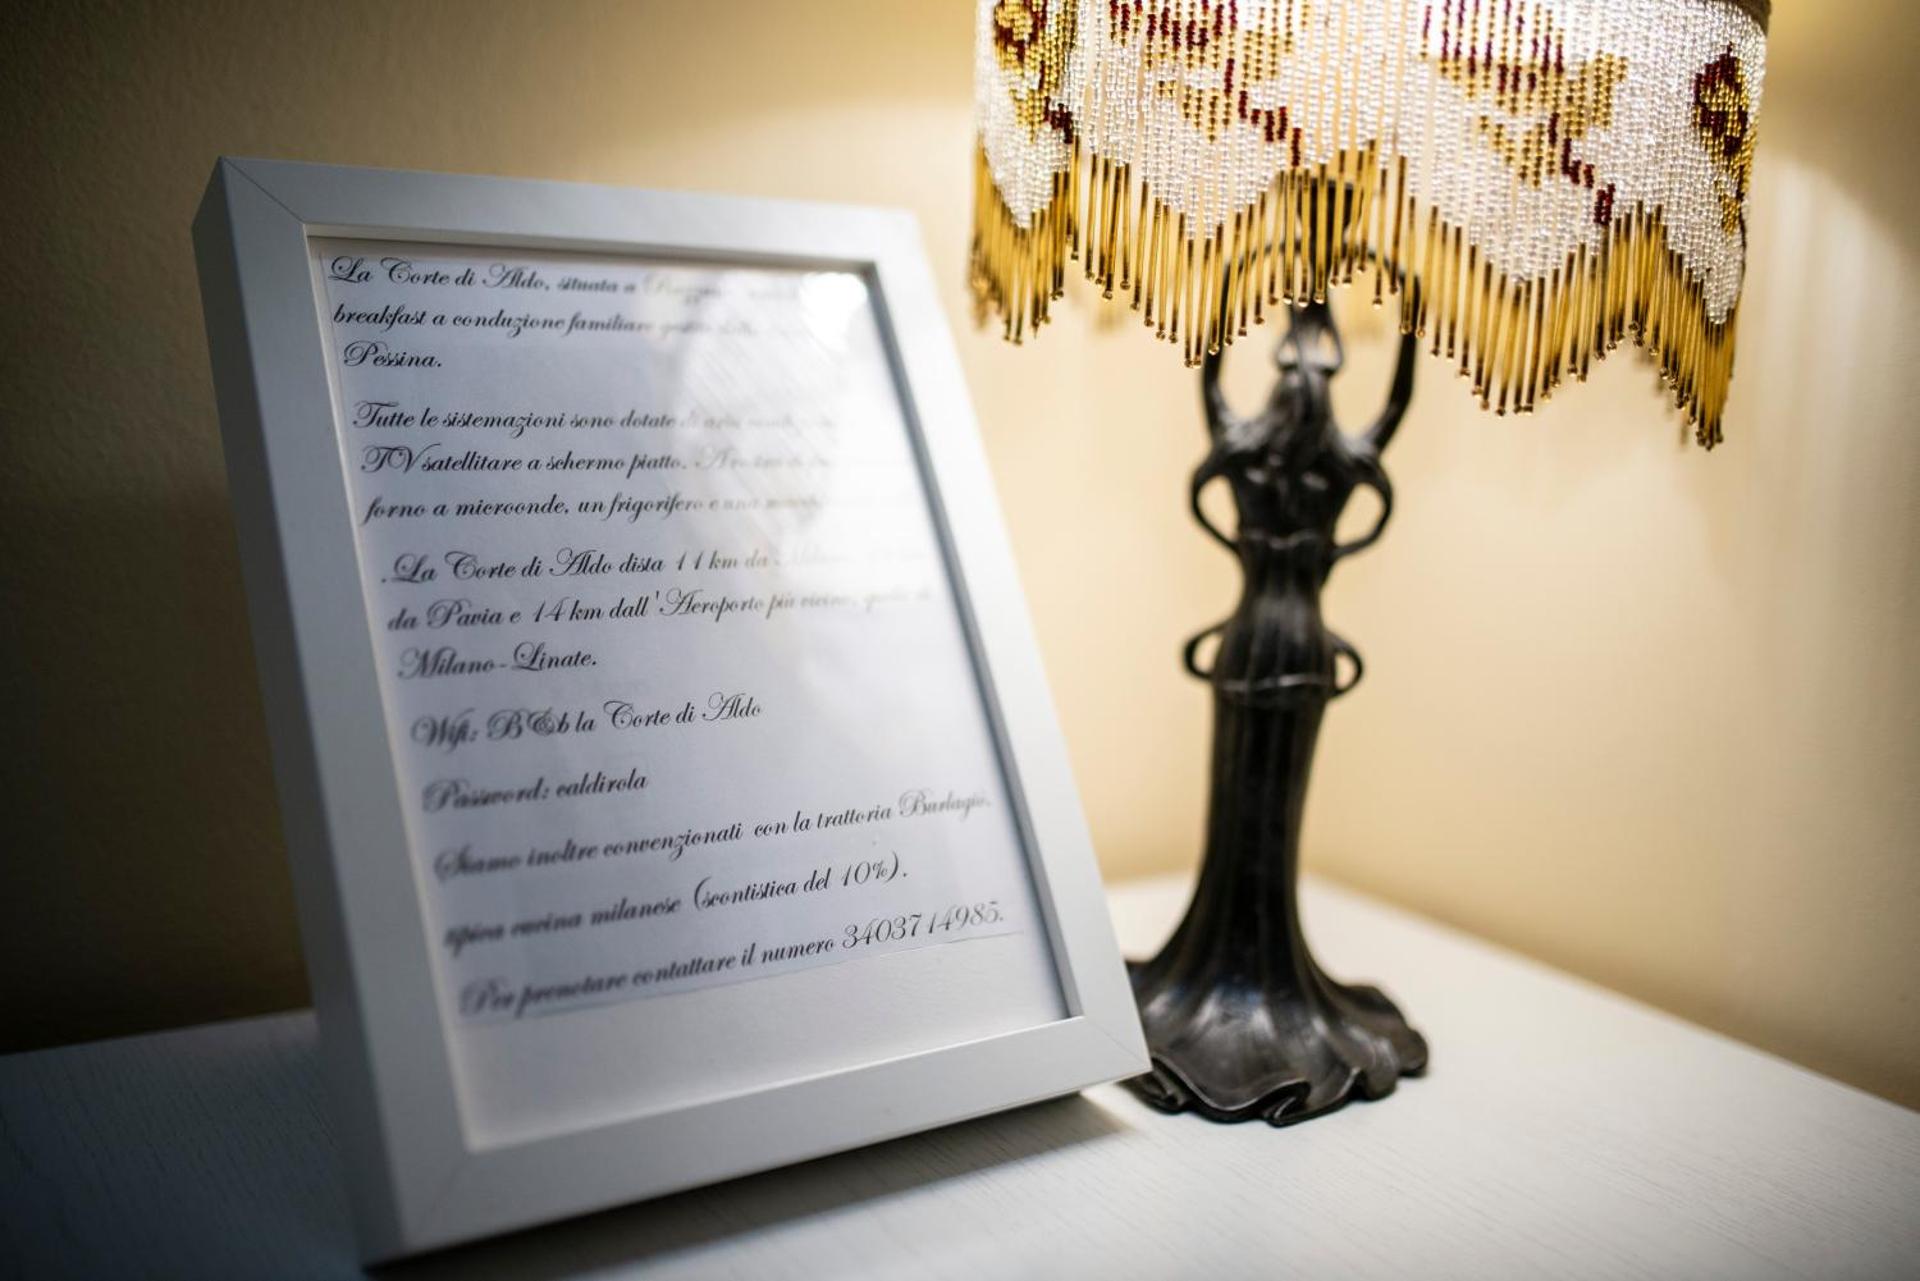 La Corte di Aldo, situata a
breakfast a conduzione familiare
Pessina.
Tutte le sistemazioni sono dotate di aria
TV satellitare a schermo piatto.
forno a microonde, un frigorifero e una
.La Corte di Aldo dista 11 km da
da Pavia e 14 km dall'Aeroporto più vicino, quello di
Milano-Linate.
Wifi: B&b la Corte di Aldo
Password: caldirola
Siamo inoltre convenzionati con la trattoria
cucina milanese (scontistica del 10%).
Per prenotare contattare il numero 3403714985.